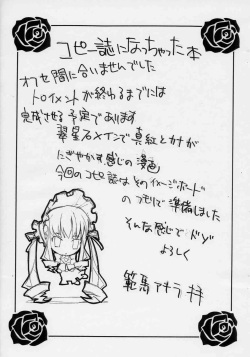 コピー誌になっちゃった本
オフセ間に合いませんでした
トロイメントが終わるまでには
完成させる予定であります
翠星石メインで真紅とカナが
にぎやかす感じの漫画
今回のコピー誌はそのイメージボード
のつもりで準備しました
そんな感じでドゾ
よろしく
範馬アキラ